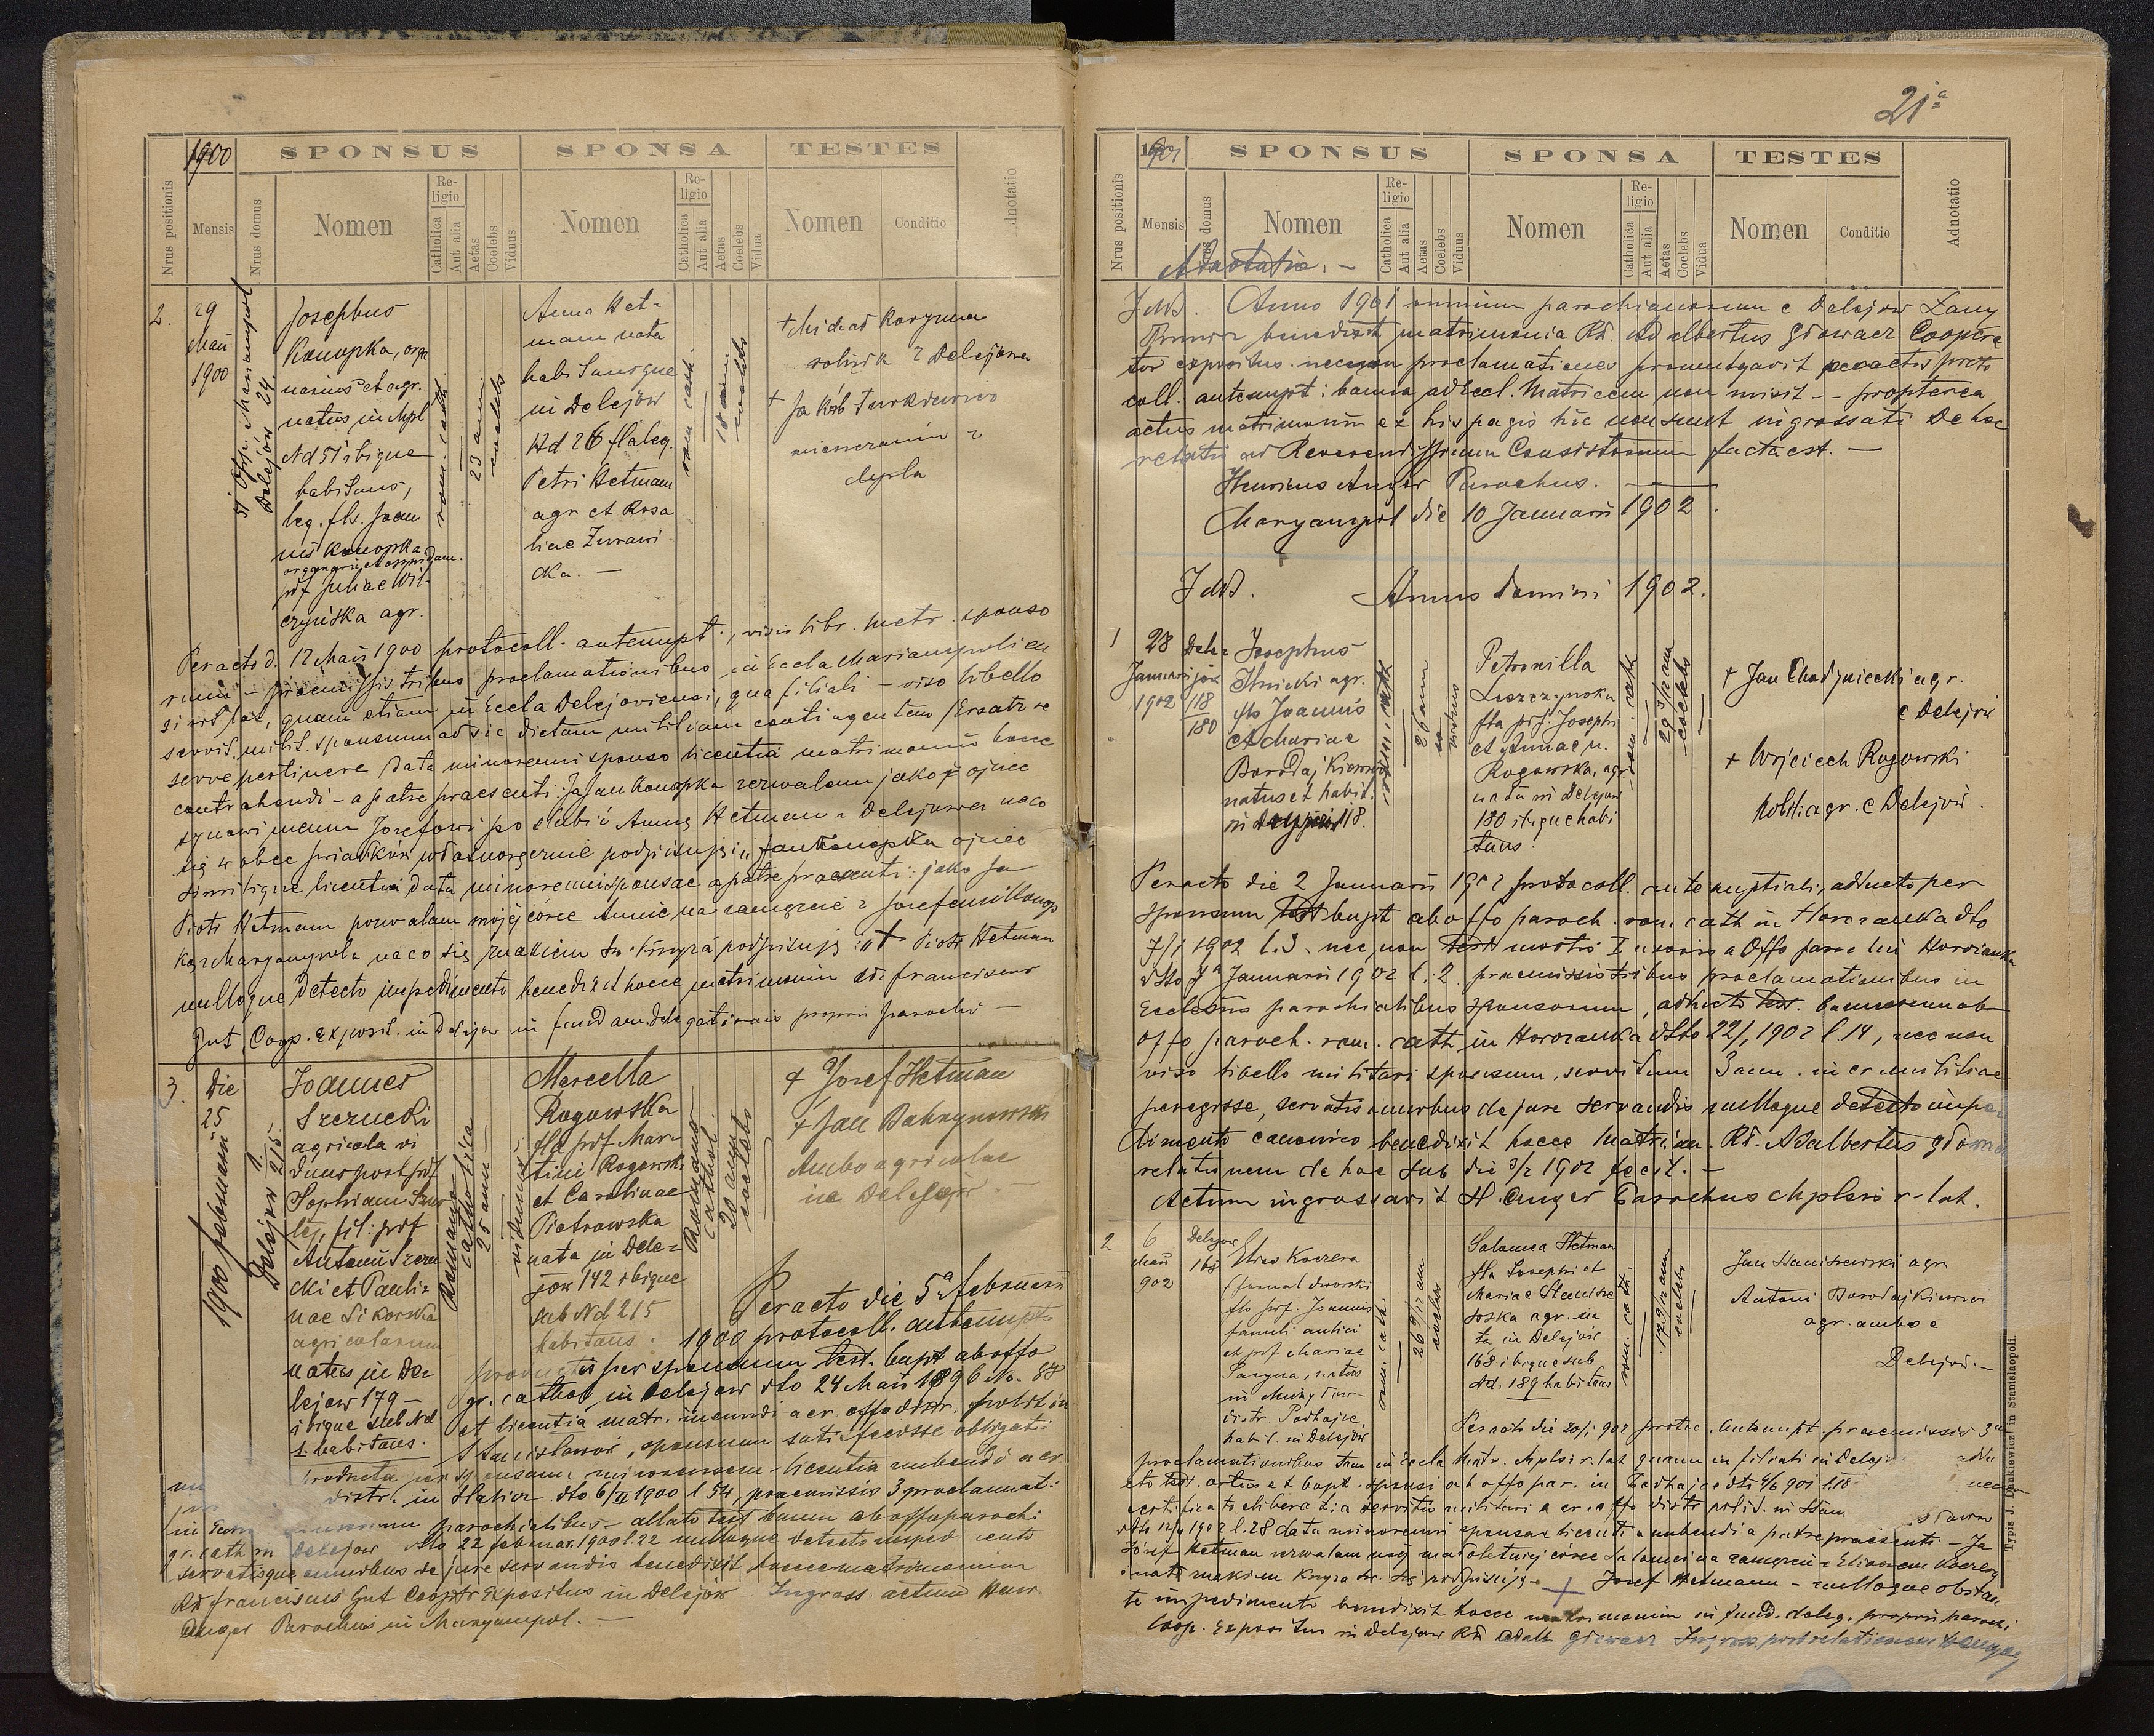 1900
SPONSUS
SPONSA
TESTES
Nrus positionis
Mensis
Nrus domus
Nomen
Religio
Catholica
Aut alia
Aetas
Coelebs
Viduus
Nomen
Religio
Catholica
Aut alia
Aetas
Coelebs
Vidua
Nomen
Conditio
dnotatio
2.
29
Maii
1900
51 Opp. Mariampol
Delejów 24.
Josephus
Konopka, orga
narius et agr.
natus in Mpl
Nd 51 ibique
habitans,
leg. fls. Joan
nis Konopka
organarii et oppidan.
pdf Juliae Wil-
czyńska agr.
rom. cath.
23 ann
coelebs
Anna Het-
mann nata
habitansque
in Delejów
Nd 26 fla leg.
Petri Hetmann
agr et Rosa
liae Żurawi
cka. —
rom cath.
18 ann
coelebs
+ Michał Karyma
rolnik z Delejowa
+ Jakób Turkiewicz
mieszczanin z
Mpla
Peracto d. 12 Maii 1900 protocoll. antenupt., visis libr. metr. sponso
rum – praemissis tribus proclamationibus in Eccla Mariampolien
si rit lat, quam etiam in Eccla Delejoviensi, qua filiali – viso libello
servit. milit. sponsum ad sic dictam militiam contingentem /Ersatz re
serve pertinere data minorenni sponso licentia matrimonium hocce
contrahendi – a patre praesenti: Ja Jan Konopka zezwalam jako ojciec
synowi memu Józefowi poślubić Annę Hetman z Delejowa na co
się w obec świadków własnoręcznie podpisuję: "Jan Konopka ojciec
similique licentia data minorenni sponsae a patre praesenti: jako ja
Piotr Hetman pozwalam mojej córce Annie na zamęzcie z Josefem Konop
ką z Maryampola na co się znakiem św. Krzyża podpisuję: "+ Piotr Hetman
nulloque detecto impedimento benedixit hocce matrimonium Rd. Franciscus
Gut Coop. Exposit. in Delejow in fundam. delegationis proprii parochi —
3.
Die
25
1900 februarii
Delejów 215. 1.
Joannes
Szerucki
agricola vi
duus post pdf
Sophiam
fil: pdf
Antonii Szeru
cki et Pauli=
nae Sikorska
agricolarum
natus in De=
lejow 179 –
ibique sub Nd
1. habitans.
Romano
catholica
25 ann –
viduus
Marcella
Rogowska
fla pdf Mar=
tini Rogowski
et Carolinae
Piotrowska
nata in Dele=
jow 142 ibique
sub Nd 215
habitans.
Romano
cathol.
20 ann
coelebs
+ Józef Hetman
+ Jan Bahrynowski
Ambo agricolae
in Delejów
Peracto die 5a februarii
1900 protocoll. antenupt.
producta per sponsum test. bapt ab offo
gr. cathol in Delejow dto 24 Maii 1896 No. 87
et licentia matr. ineundi a cr. offo distr. polit in
Stanisławow, sponsum satisfecisse obligati:
Producta per sponsam minorennem – licentia nubendi a cr.
distr. in Halicz dto 6/II 1900 l 54, praemissis 3 proclamati:
in parochialibus – allato test bannn ab offo parochi
gr. cath in Delejow dto 22 februar. 1900 l. 22 nulloque detecto imped ento
servatisque omnibus de jure servandis benedixit hocce matrimonium
Rd franciscus Gut Cooptr Expositus in Delejów Ingross. actum Henr.
Anger Parochus in Maryampol. —
21a
1901
SPONSUS
SPONSA
TESTES
Nrus positionis
Mensis
Nrus domus
Nomen
Religio
Catholica
Aut alia
Aetas
Coelebs
Viduus
Nomen
Religio
Catholica
Aut alia
Aetas
Coelebs
Vidua
Nomen
Conditio
Adnotatio
Adnotatio. –
Anno 1901 omnium parochianorum e Delejow Łany
benedixit matrimonia Rd. Adalbertus Głowacz Coopera
tor expositus necnon proclamationes promulgavit peractis proto
coll. antenupt: banna ad eccl. Matricem non misit – – propterea
actus matrimonii ex his pagis hic non sunt ingrossati De hac
relatio ad Reverendissimum Consistorium facta est. —
Henricus Anger Parochus.
Maryampol die 10 Januarii 1902.
Annus Domini 1902.
1
28
Januarii
1902
Dele=
jów
118
180
Josephus
Ilnicki agr.
fls Joannis
et Mariae
Borodajkiewicz
natus et habit.
in 118.
rom. cath
26 ann
viduus
Petronilla
Leszczynska
fla pdf. Josephi
et Annae n.
Rogowska, agr.
nata in Delejow
180 ibique habi
tans.
rom. cath
29 3/12 ann
coelebs
+ Jan Chodyniecki agr.
e Delejów
+ Wojciech Rogowski
agr. e Delejów.
Peracto die 2 Januarii 1902 protocoll. antenuptiali, adducto per
sponsum test bapt ab offo paroch. rom. cath in Horożanka dto
7/1 1902 l. 3. nec non test mortis I uxoris a Offo paroc lii Horożanka
dto 7a Januarii 1902 l. 2. praemissis tribus proclamationibus in
Ecclesiis parochialibus sponsorum, adducto test. bannorum ab
offo paroch. rom. cath in Horożanka dto 22/1 1902 l. 14, nec non
viso libello militari sponsum, servitum 3 ann. in cr militiae
peregisse, servatis omnibus de jure servandis nulloque detecto impe
dimento canonico benedixit hocce matrim. Rd. Adalbertus Głowacz
relationem de hac sub die 3/2 1902 fecit. –
Actum ingrossavit H. Anger Parochus Mplsis r. lat.
2
6
Maii
902
Delejow
168
Elias Koczera
dworski
fls pdf. Joannis
famuli aulici
et pdf Mariae
natus
in
distr. Podhajce,
habit. in Delejów
rom. cath.
26 9/12 ann
coelebs
Salomea Hetman
fla Josephi et
Mariae
agr. na
ta in Delejów
168 ibique sub
Nd. 189 habitans
rom. cath.
17 9/12 ann
coelebs
Jan Haniszewski agr
Antoni Borodajkiewicz
agr. ambo e
Delejów. –
Peracto die 20/1 902 protoc. antenupt praemissis 3
proclamationibus tam in Eccla Matr. Mplsi r. lat quam in filiali in Delej
cto test. ortus et bapt. sponsi ab offo par. in Podhajce dto 4/6 901 l.
certificato libera tia servitii militari a cr. offo distr polit. in
dto 12/4 1902 l. 28 data minorenni sponsae licentia nubendi a patre praesenti – Ja
Józef Hetman zezwalam mej małoletniej córce Salomei na zamęzcie z Eliaszem Koczerą
znakiem krzyża św. się podpisuję – + Josef Hetmann – nulloque obstan
te impedimento benedixit hocce matrimonium in fund. deleg. proprii parochi
Coop. Expositus in Delejow Rd Adalb Głowacz Ingross. post relationem H Anger
Typis J. Dankiewicz in Stanislaopoli.